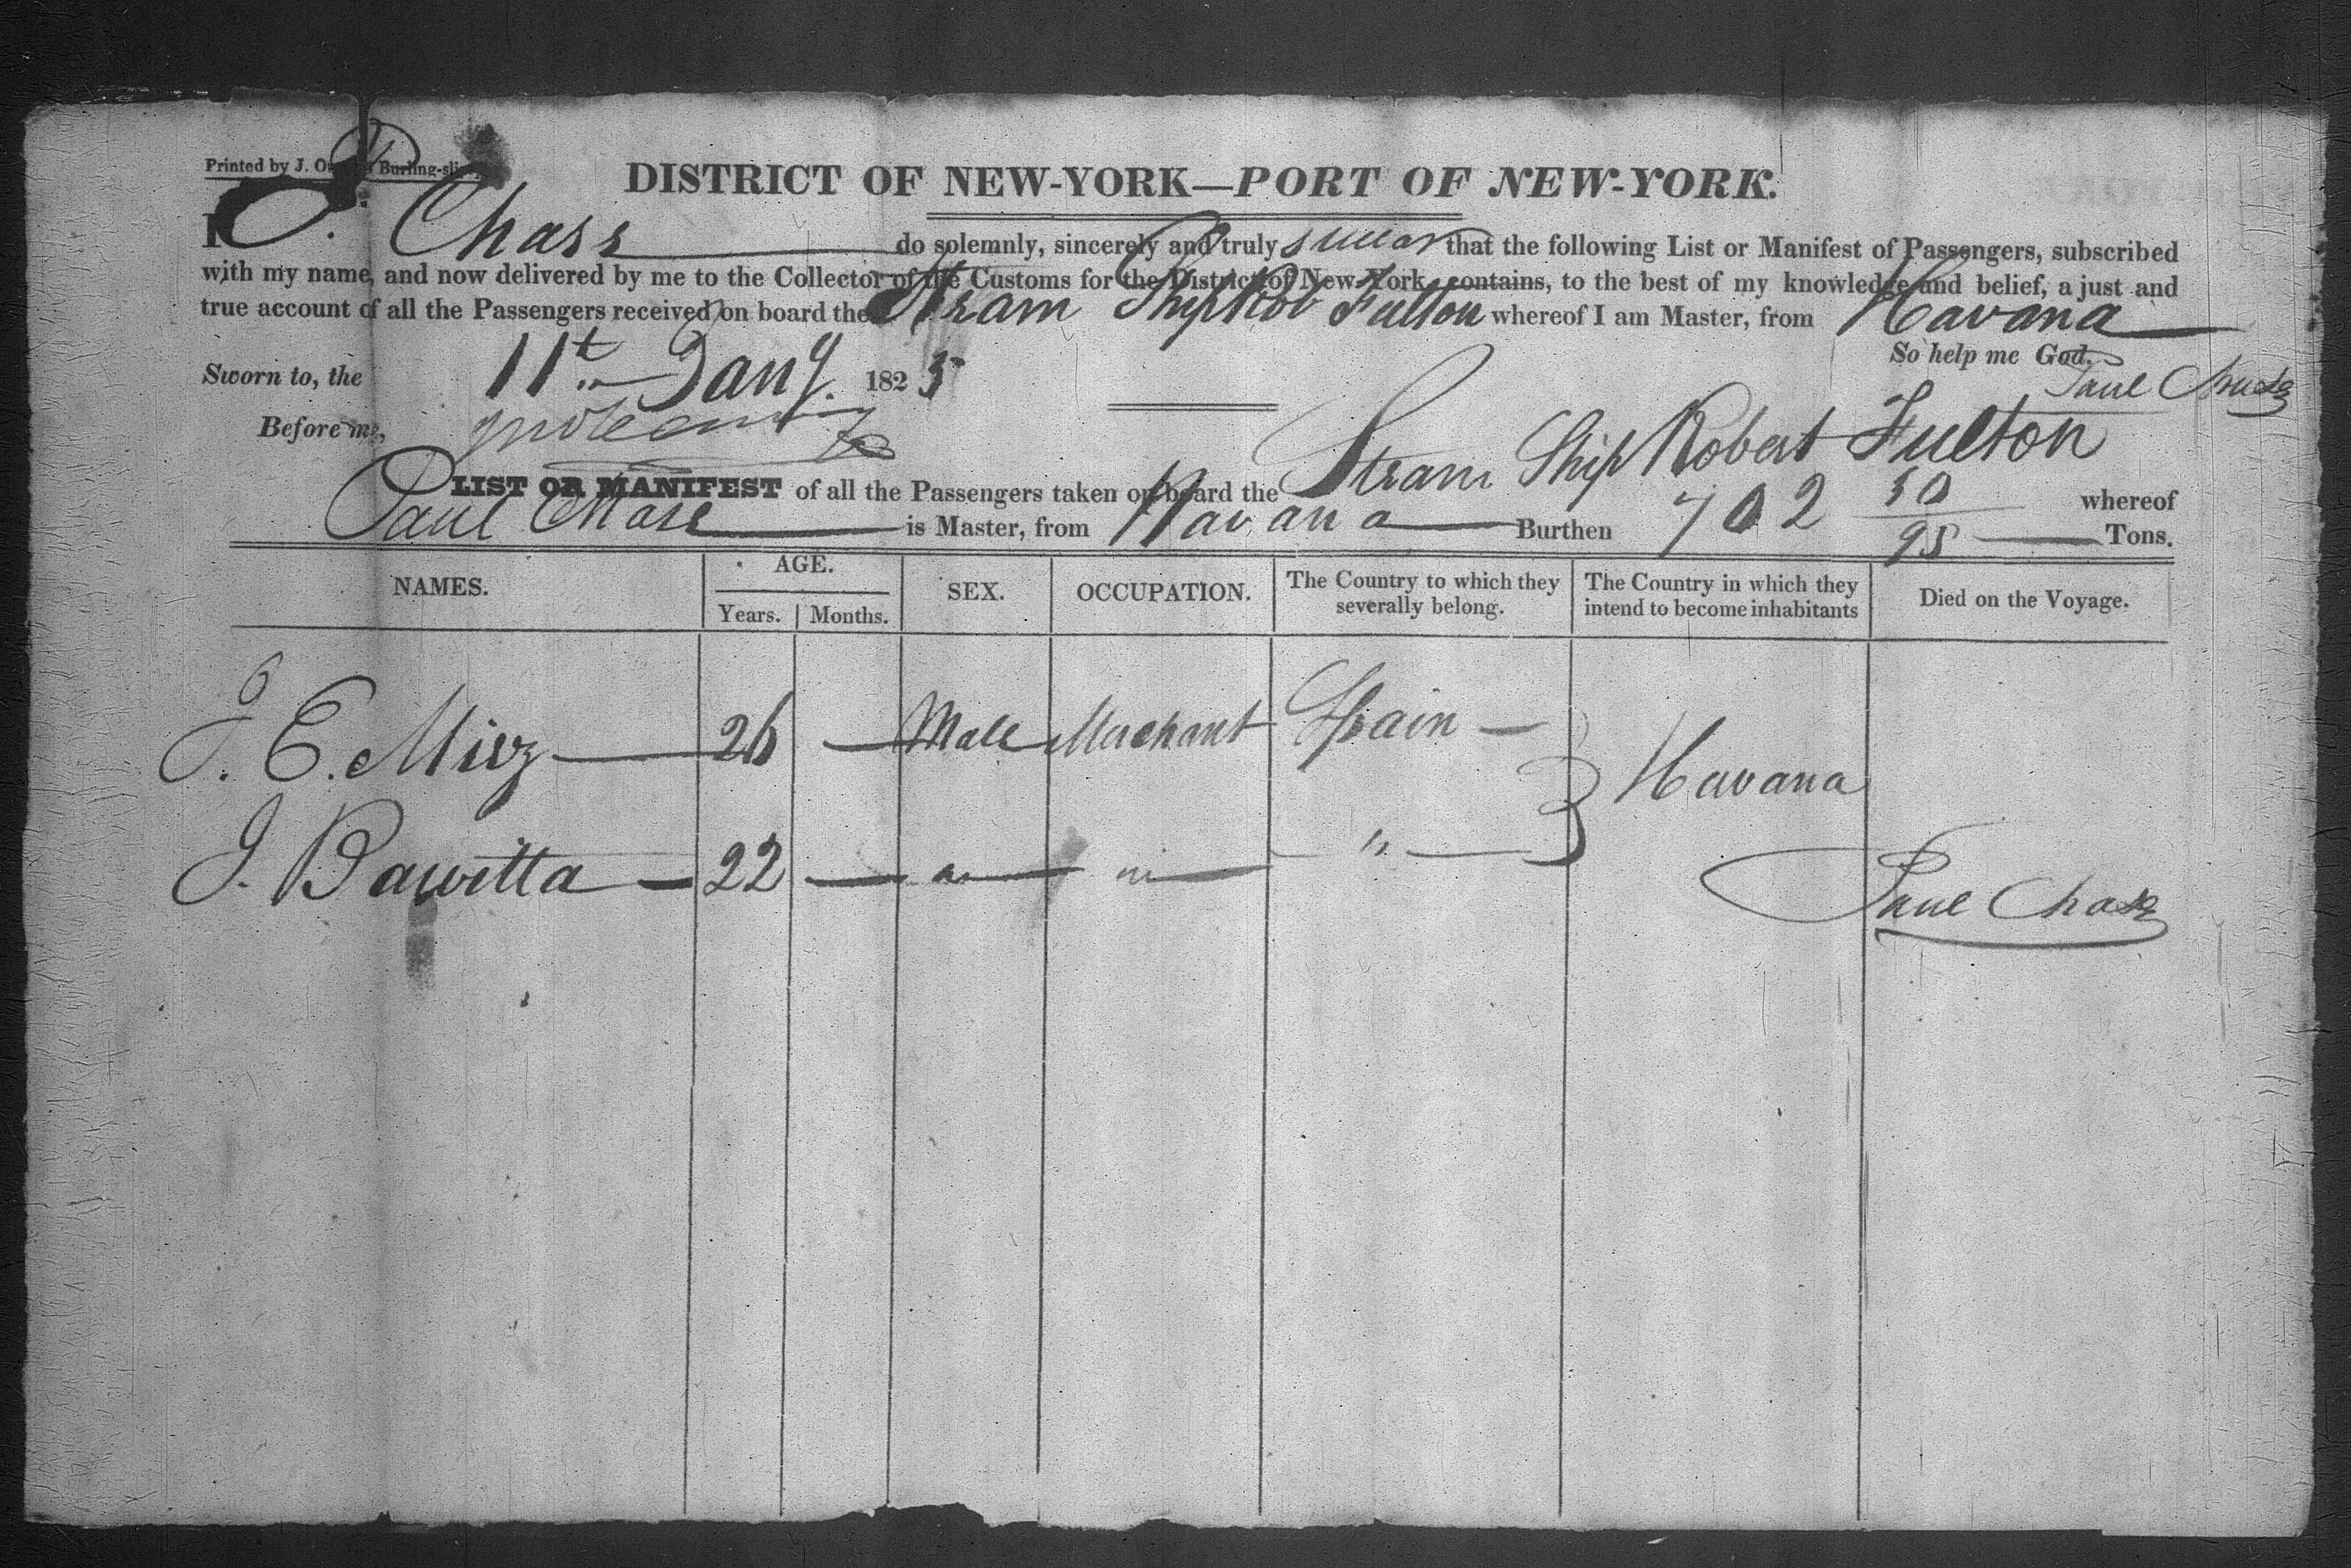 Printed by J. Burling-slip
DISTRICT OF NEW-YORK—PORT OF NEW-YORK.
I P. Chase do solemnly, sincerely and truly swear that the following List or Manifest of Passengers, subscribed
with my name, and now delivered by me to the Collector of the Customs for the District of New-York, contains, to the best of my knowledge and belief, a just and
true account of all the Passengers received on board the Steam Ship Rob Fulton whereof I am Master, from Havana
So help me God.
Paul Chase
Sworn to, the 11th Jany. 1825
Before me,
LIST OR MANIFEST of all the Passengers taken on board the Steam Ship Robert Fulton whereof
Paul Chase is Master, from Havana Burthen 702 50/95 Tons.
NAMES. AGE. Years. Months. SEX. OCCUPATION. The Country to which they severally belong. The Country in which they intend to become inhabitants Died on the Voyage.
J. E. 26 — Male Merchant Spain — Havana
J. Bawitta — 22 — " " "
Paul Chase